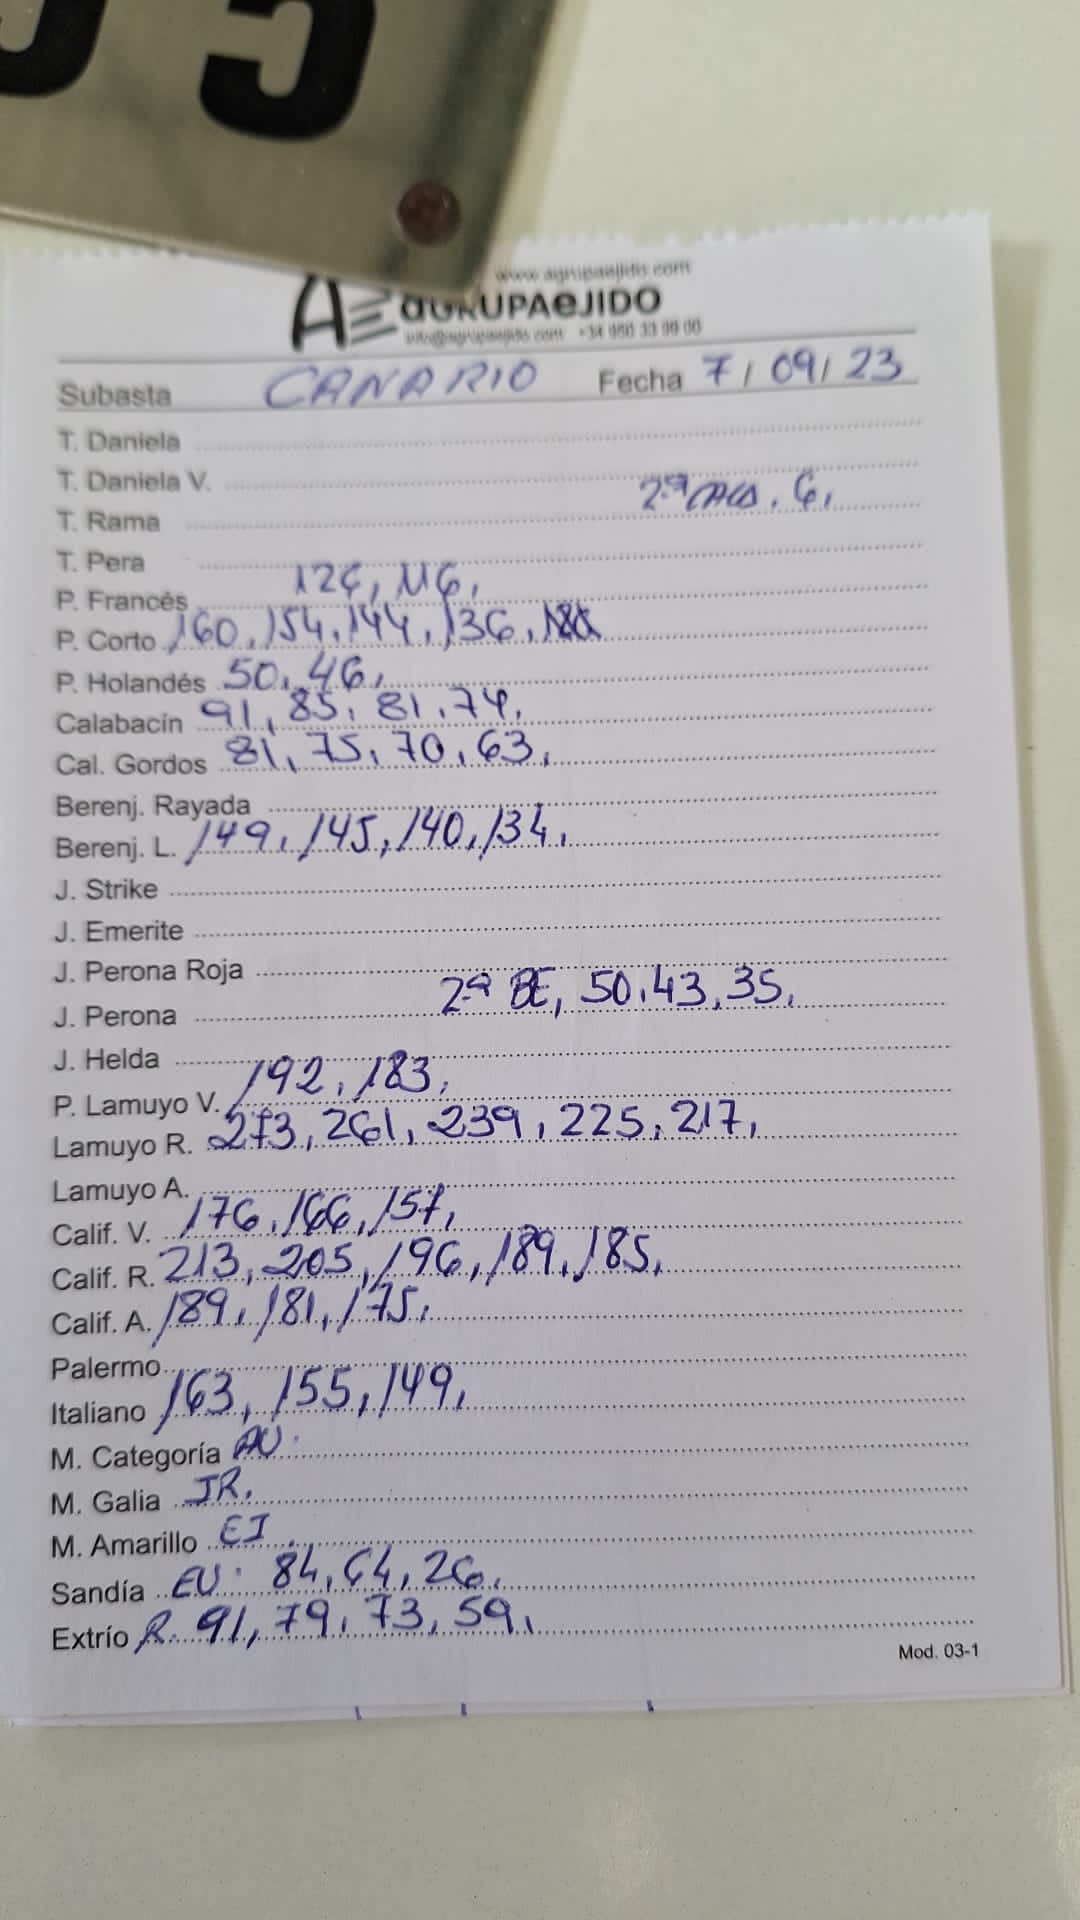 www.agrupaejido.com
AE aGRUPAeJIDO
info@agrupaejido.com +34 950 33 99 00
Subasta CANARIO Fecha 7/09/23
T. Daniela
T. Daniela V.
2ª CALA. G,
T. Rama
T. Pera
P. Francés 126, 116,
P. Corto 160, 154, 144, 136,
P. Holandés 50, 46,
Calabacín 91, 85, 81, 74,
Cal. Gordos 81, 75, 70, 63,
Berenj. Rayada
Berenj. L. 149, 145, 140, 134,
J. Strike
J. Emerite
J. Perona Roja
J. Perona 2ª BE, 50, 43, 35,
J. Helda
P. Lamuyo V. 192, 183,
Lamuyo R. 273, 261, 239, 225, 217,
Lamuyo A.
Calif. V. 176, 166, 157,
Calif. R. 213, 205, 196, 189, 185,
Calif. A. 189, 181, 175,
Palermo
Italiano 163, 155, 149,
M. Categoría AU.
M. Galia JR.
M. Amarillo EI
Sandía EU. 84, 64, 26,
Extrío R. 91, 79, 73, 59,
Mod. 03-1